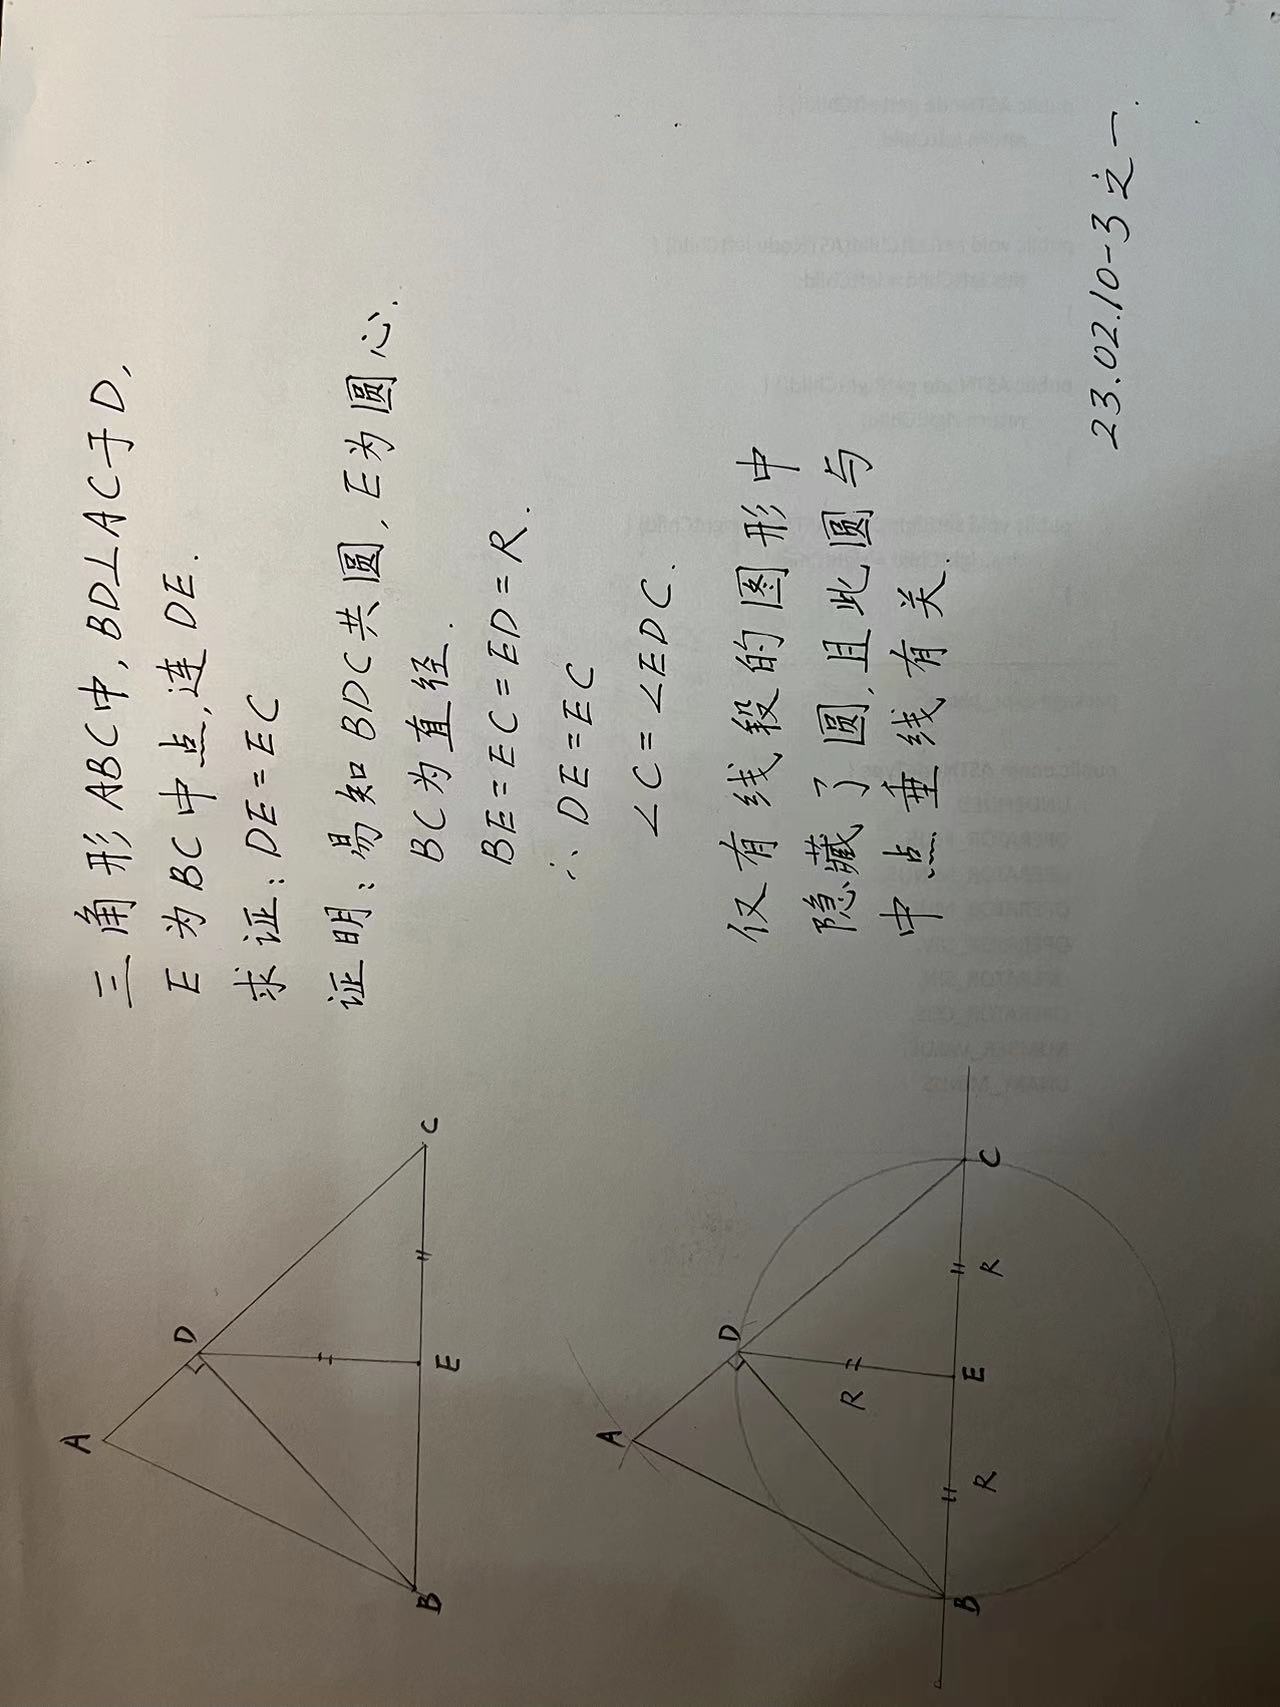 A
D
B
E
C
三角形ABC中,BD⊥AC于D,
E为BC中点,连DE.
求证:DE=EC
证明:易知BDC共圆,E为圆心.
BC为直径.
BE=EC=ED=R.
∴DE=EC
∠C=∠EDC.
A
D
R
B
E
C
R
R
仅有线段的图形中
隐藏了圆,且此圆与
中点垂线有关.
23.02.10-3之一.